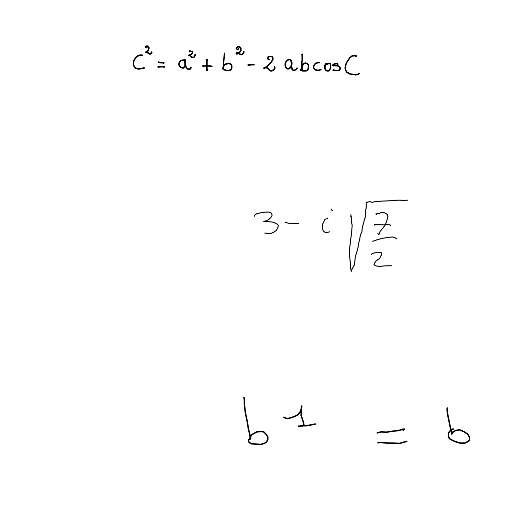 c² = a² + b² - 2abcosC
3 - i√(7/2)
b¹ = b